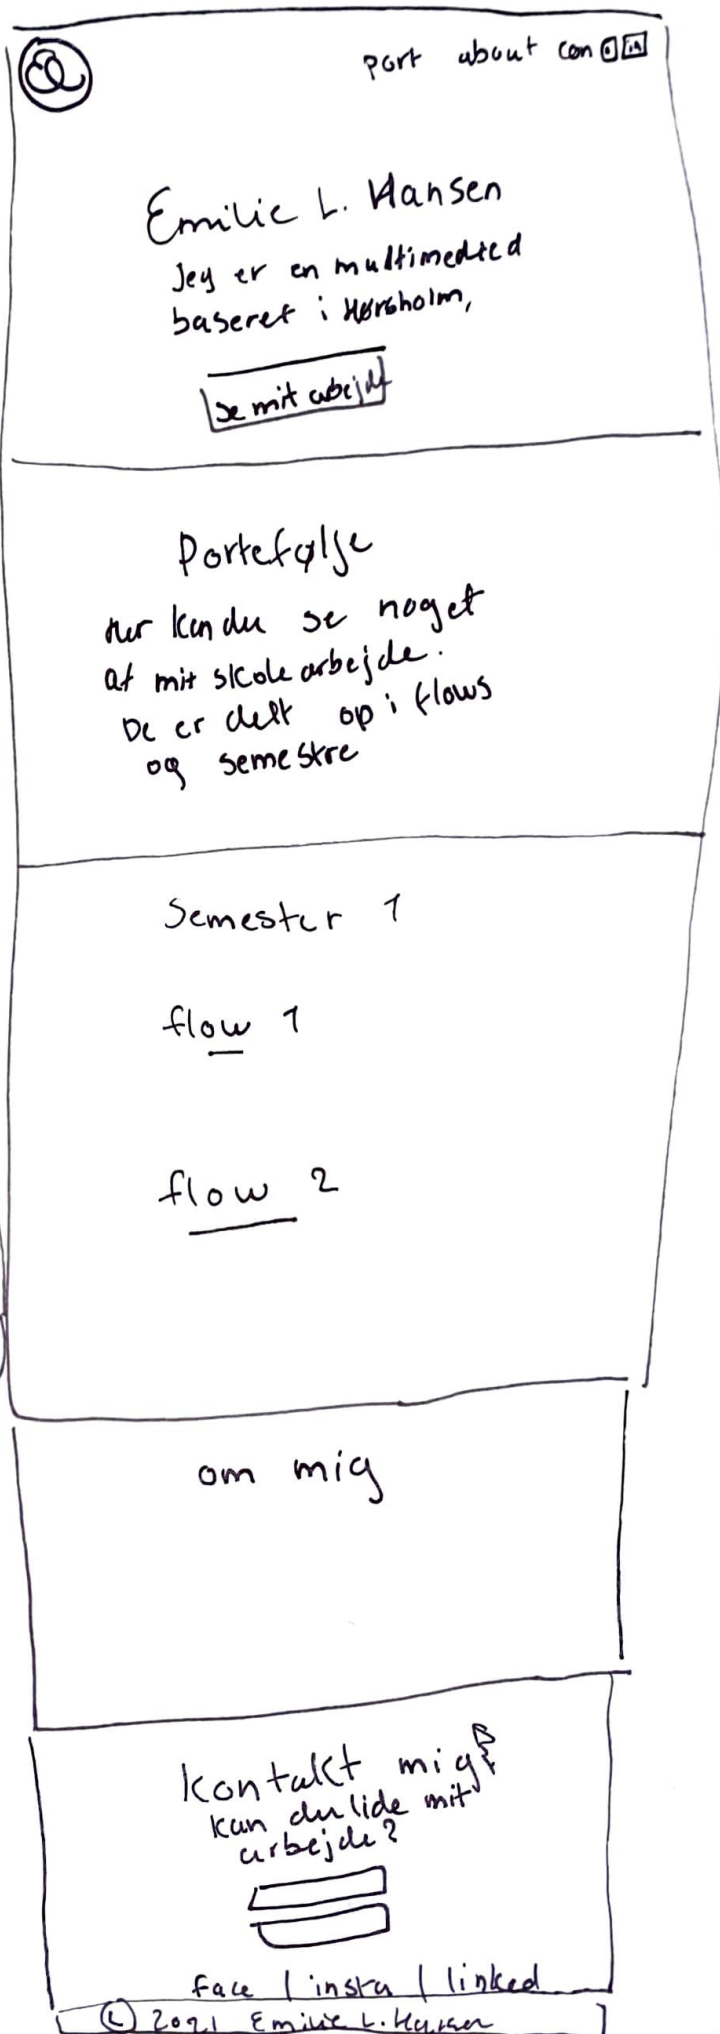 port about con in
Emilie L. Hansen
Jeg er en multimedied
baseret i Hørsholm,
se mit arbejde
Portefølje
Her kan du se noget
af mit skole arbejde.
De er delt op i flows
og semestre
Semester 1
flow 1
flow 2
om mig
Kontakt mig
kan du lide mit
arbejde?
face | insta | linked
© 2021 Emilie L. Hansen